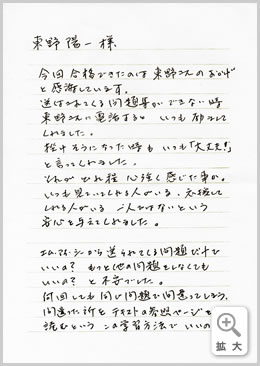 東野 陽一 様
今回 合格できたのは 東野さんのおかげ
と感謝しています。
送られてくる問題集ができない時
東野さんに電話すると いつも励まして
くれました。
挫けそうになった時も いつも「大丈夫!」
と言ってくれました。
それがどれ程 心強く感じた事か。
いつも見ていてくれる人がいる、応援して
くれる人がいる 一人ではないという
安心を与えてくれました。
エム・アイ・シーから送られてくる問題だけで
いいの? もっと他の問題をしなくても
いいの? と不安でした。
何回しても同じ問題で間違ってしまう、
間違った所とテキストの参照ページを
読むという この学習方法で いいの
拡大